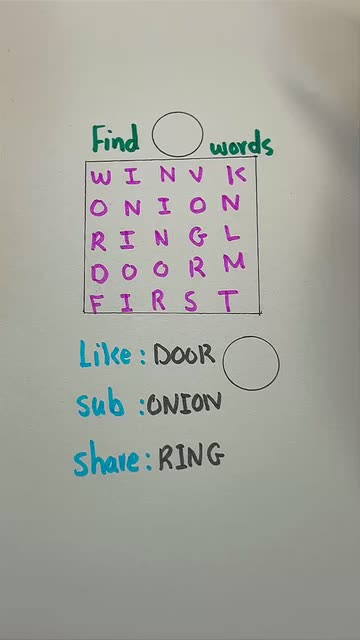 Find words
W I N V K
O N I O N
R I N G L
D O O R M
F I R S T
Like : DOOR
Sub : ONION
Share : RING